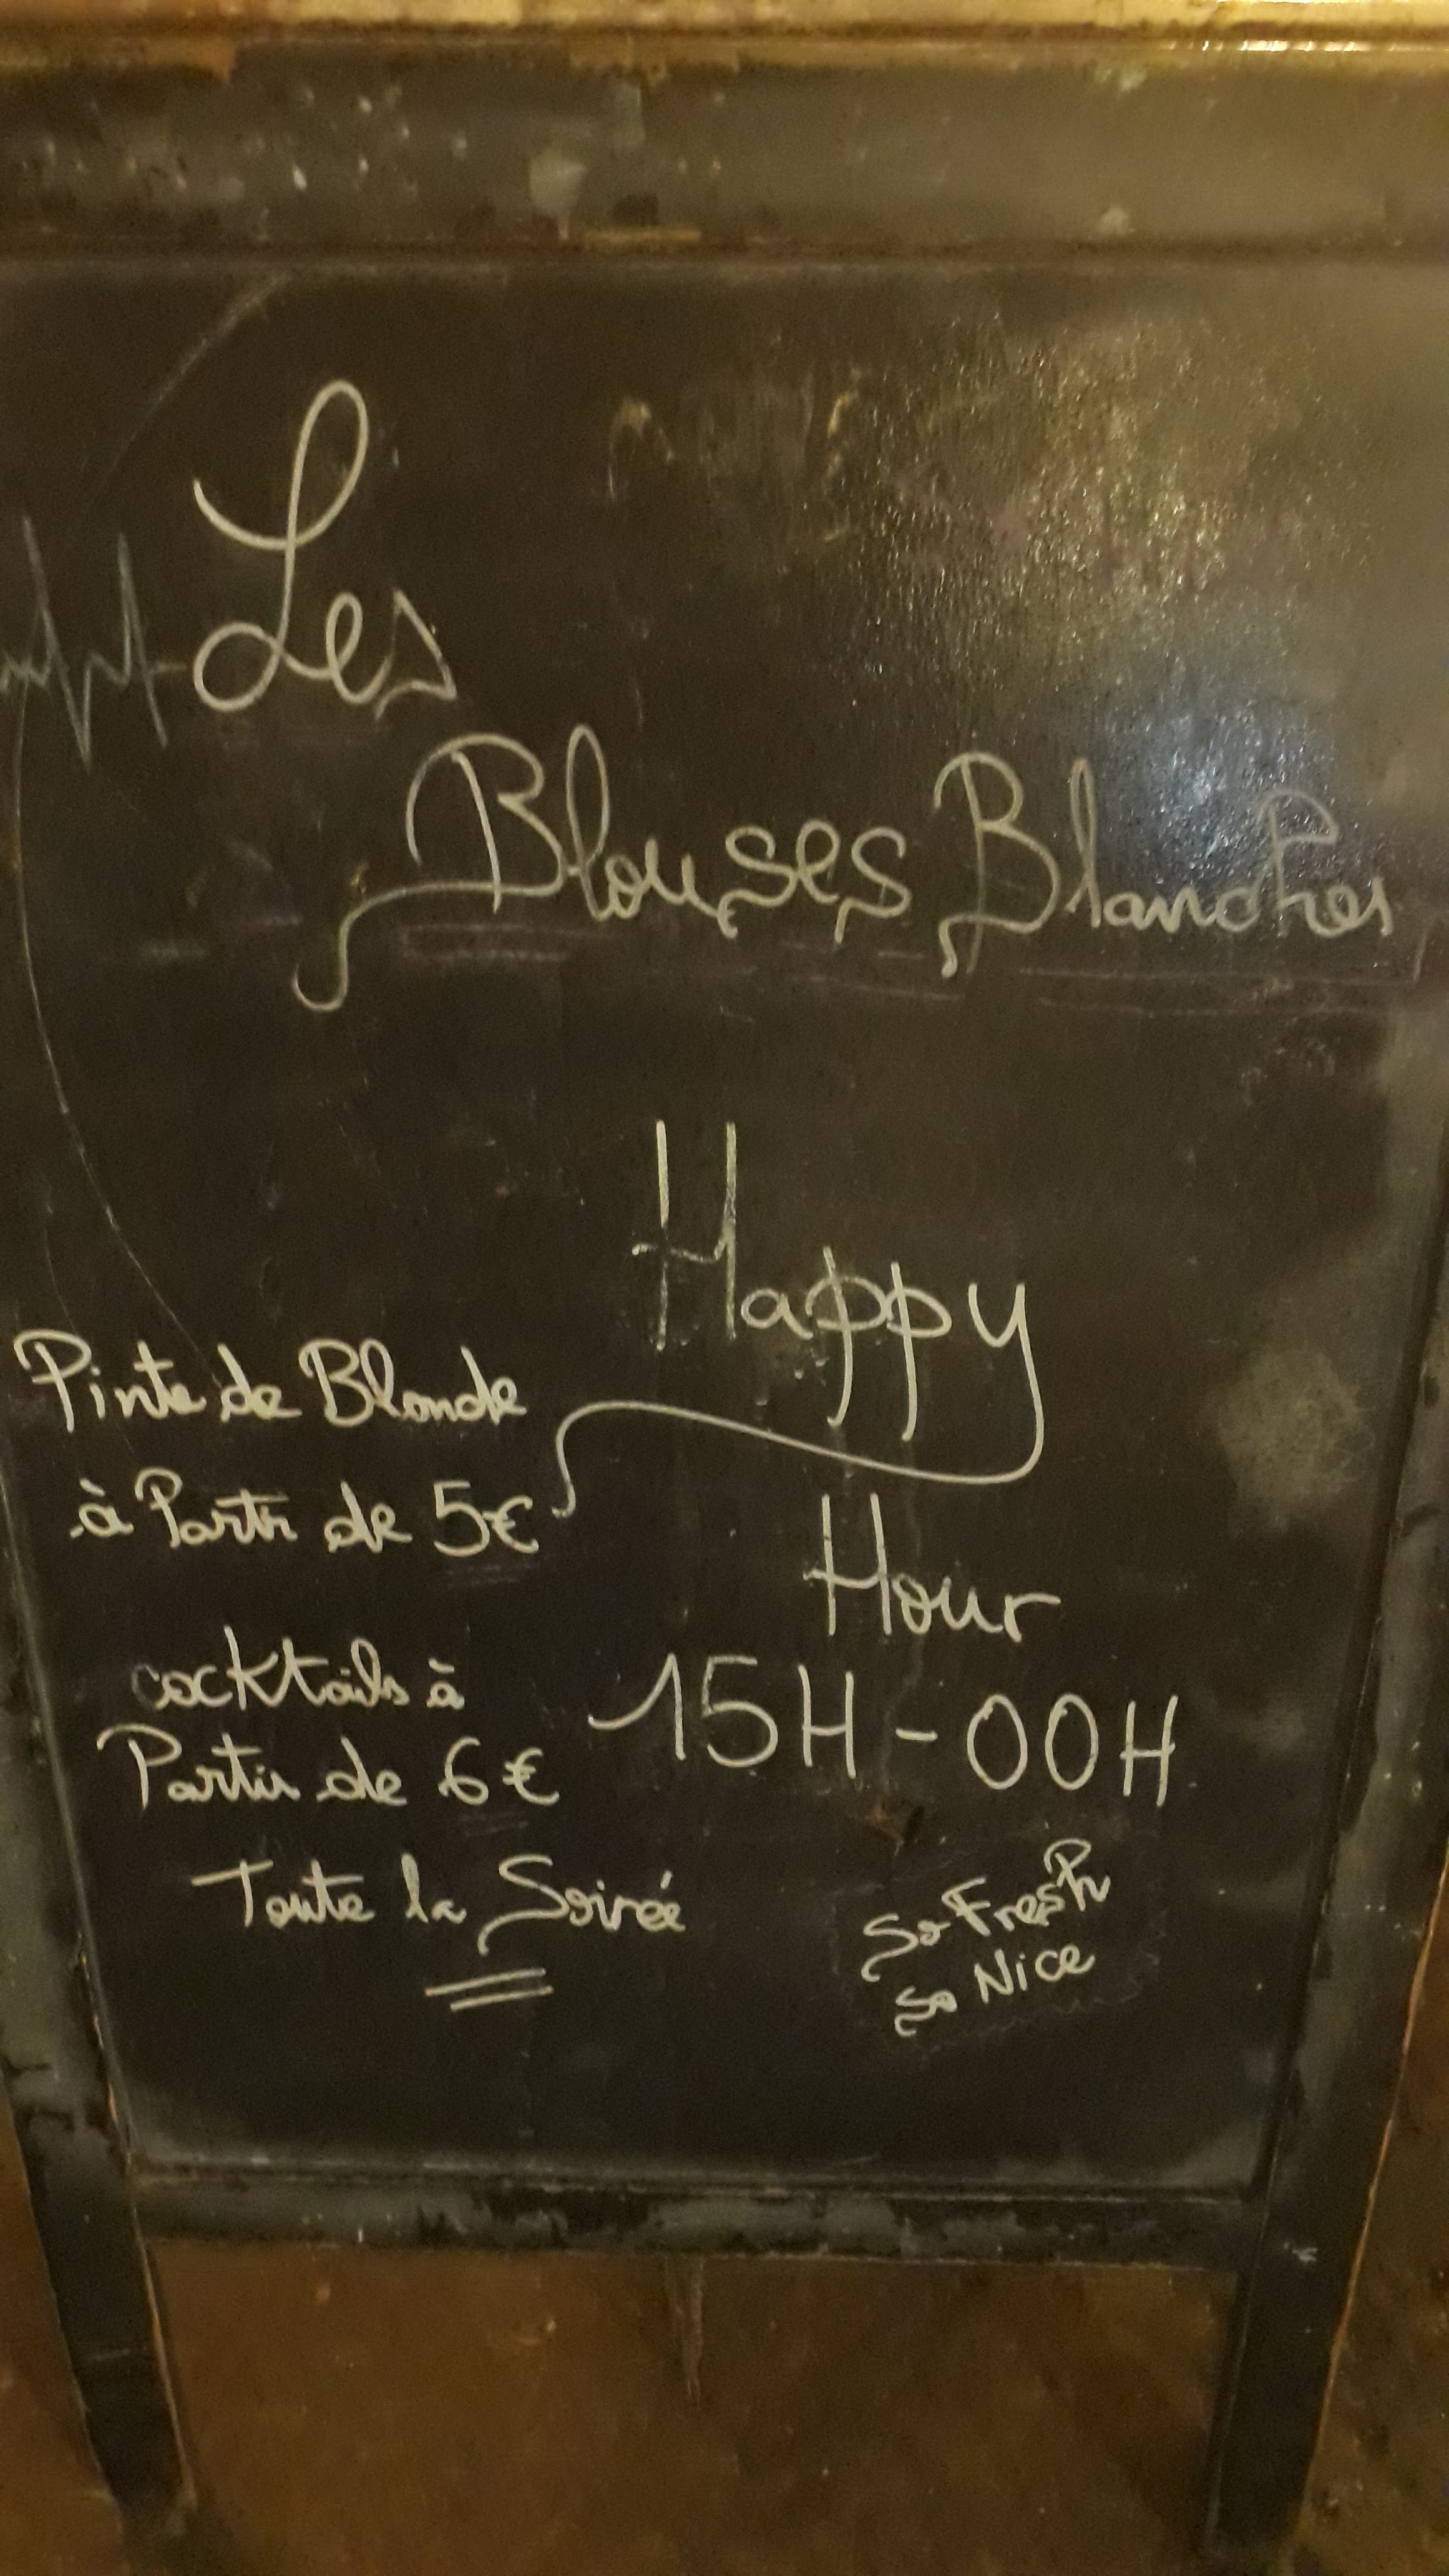 Les
Blouses Blanches
Happy
Hour
15H-00H
Pinte de Blonde
à Partir de 5€
cocktails à
Partir de 6€
Toute la Soirée
So Fresh
So Nice